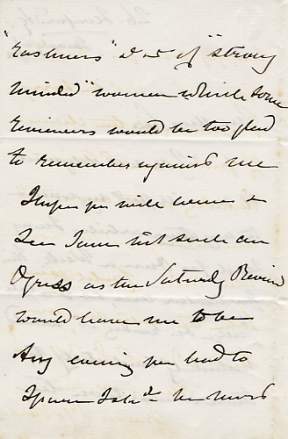 "Rashness" &c &c of "strong
minded" women which some
Reviewers would be too glad
to remember against me
I hope you will come &
see I am not such an
Ogress as the Saturday Review
would have me to be
Any evening you had to
spare I shd. be most